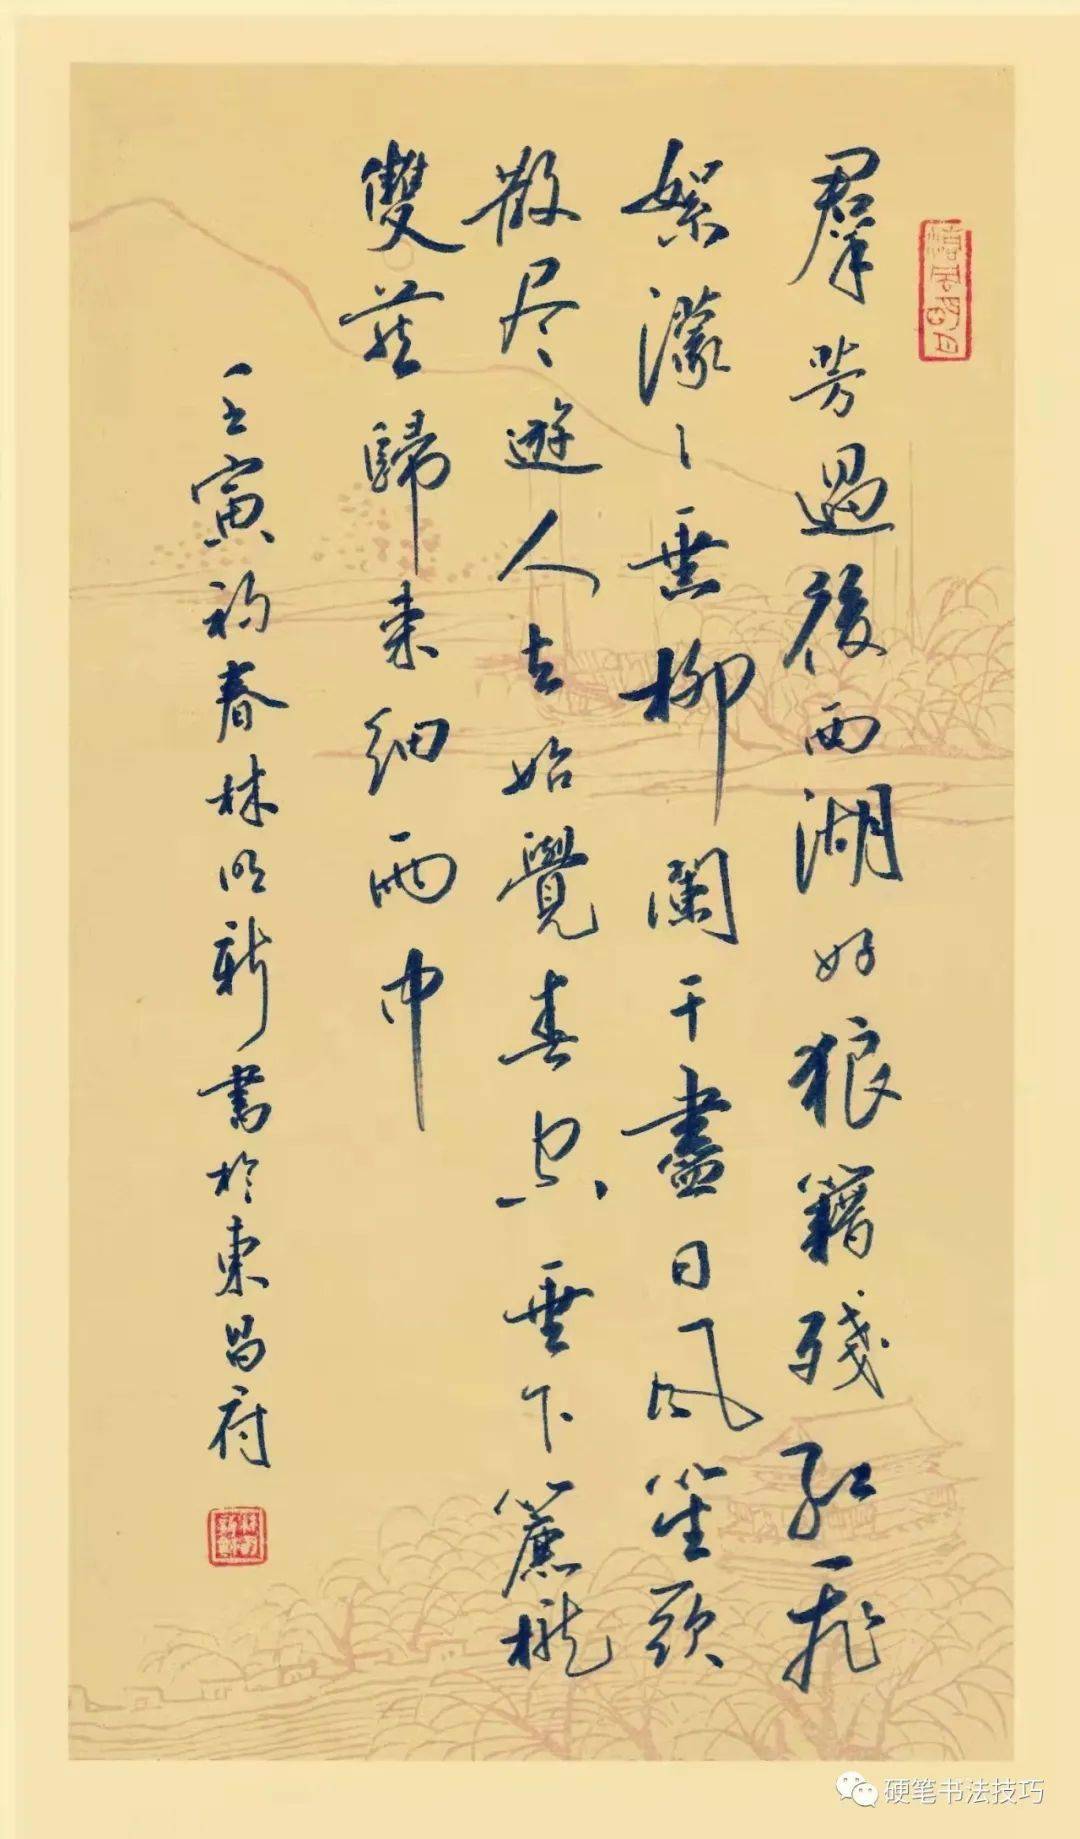 羣芳過後西湖好狼籍殘紅飛
絮濛〻垂柳闌干盡日风笙歌
散尽遊人去始覺春空垂下簾櫳
雙燕歸来細雨中
壬寅初春林明新書於東昌府
硬笔书法技巧